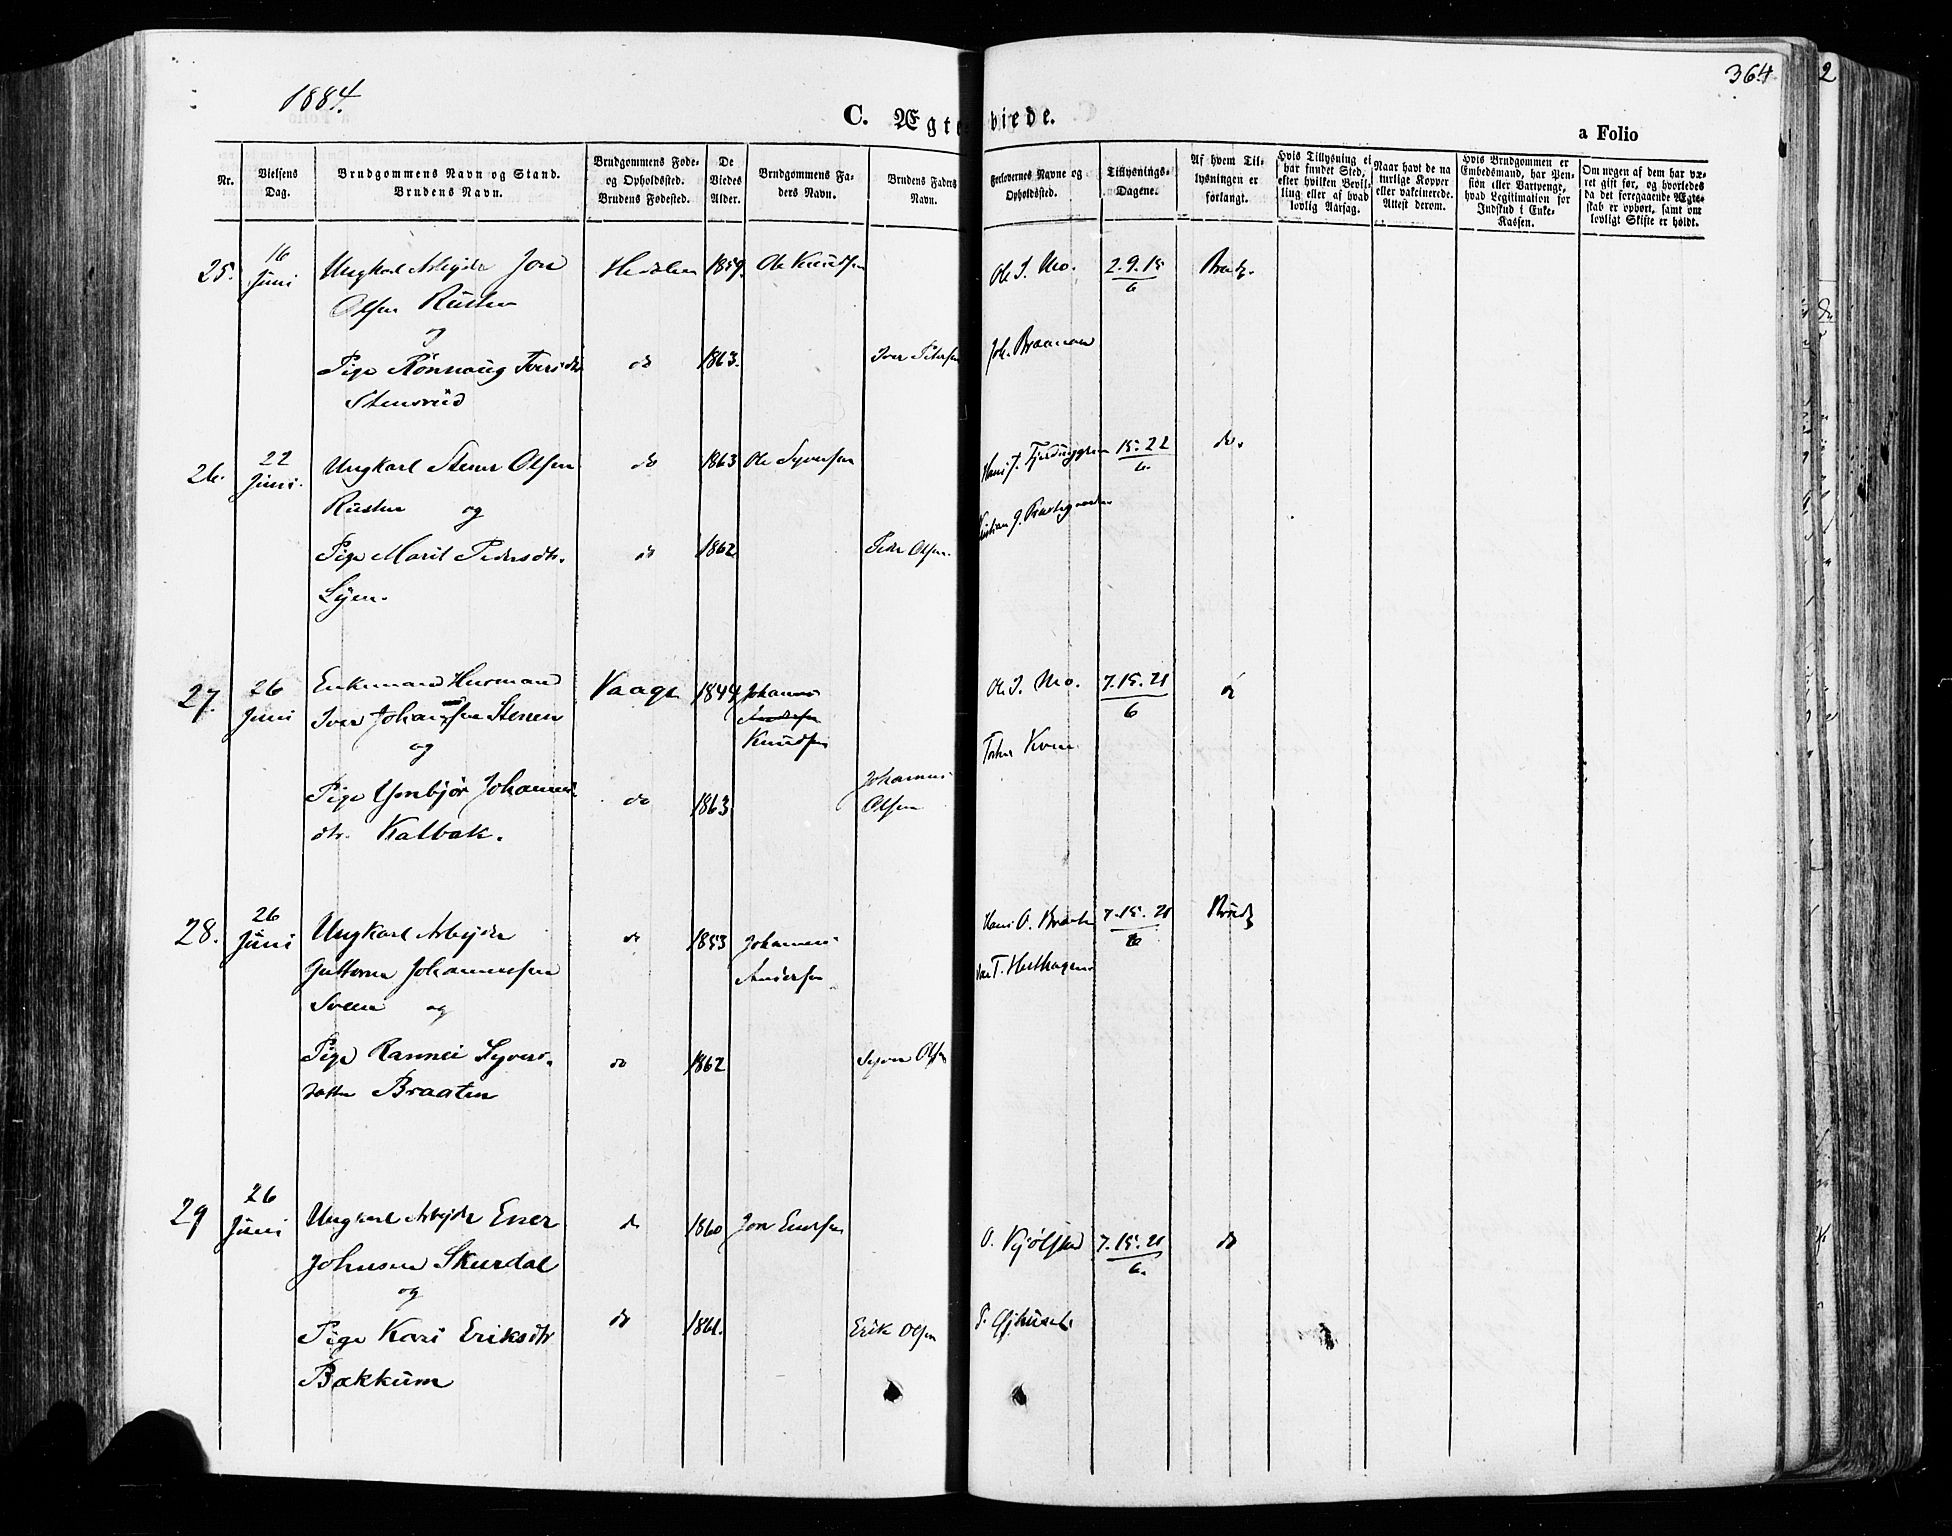 1884.
364
2
C. Ægteviede.
a Folio
Nr.
Vielsens Dag.
Brudgommens Navn og Stand.
Brudens Navn.
Brudgommens Føde- og Opholdssted.
Brudens Fødested.
De Viedes Alder.
Brudgommens Faders Navn.
Brudens Faders Navn.
Forlovernes Navne og Opholdssted.
Tillysnings-Dagene.
Af hvem Tillysningen er forlangt.
Hvis Tillysning ei har fundet Sted, efter hvilken Bevilling eller af hvad lovlig Aarsag.
Naar havt de naturlige Kopper eller vakcinerede. Attest derom.
Hvis Brudgommen er Embedsmand, har Pension eller Vartpenge, hvad Legitimation for Indskud i Enke-Kassen.
Om nogen af dem har været gift før, og hvorledes da det foregaaende Ægteskab er ophørt, samt om lovligt Skifte er holdt.
25. 16 Juni Ungkarl Arbejder Jon Hedalen 1859. Ole Knudsen Ole I. Mo. 2.9.15/6 Brudg.
Olsen Rusten
og
Pige Rønnaug Iversdtr do 1863. Iver Petersen Joh. Braanaae
Stensrud
26. 22 Juni. Ungkarl Stener Olsen do 1863 Ole Syversen Hans J. 15.22/6. do.
Rusten og
Kristian J. Prestegaarden
Pige Marit Pedersdtr. do 1862 Peder Olsen.
Lyen.
27. 26 Juni Enkemand Husmand Vaage 1844 Johannes Ole I. Mo. 7.15.21/6
Iver Johansen Stenen Knudsen
og Kvem
Pige Johannes- do 1863 Johannes
dtr. Kalbak. Olsen
28. 26 Juni Ungkarl Arbejder do 1853 Johannes Hans O. Braaten 7.15.21/6 Brudg
Guttorm Johannessen Andersen T.
Sveen og
Pige Rannei Syvers- do 1862 Syver Olsen
datter Braaten
29 26 Juni Ungkarl Arbejder Ener do 1860 Jon Enersen O. Kjølstad 7.15.21/6. do
Johnsen Skurdal
og
Pige Kari Eriksdtr do 1861. Erik Olsen P.
Bakkum